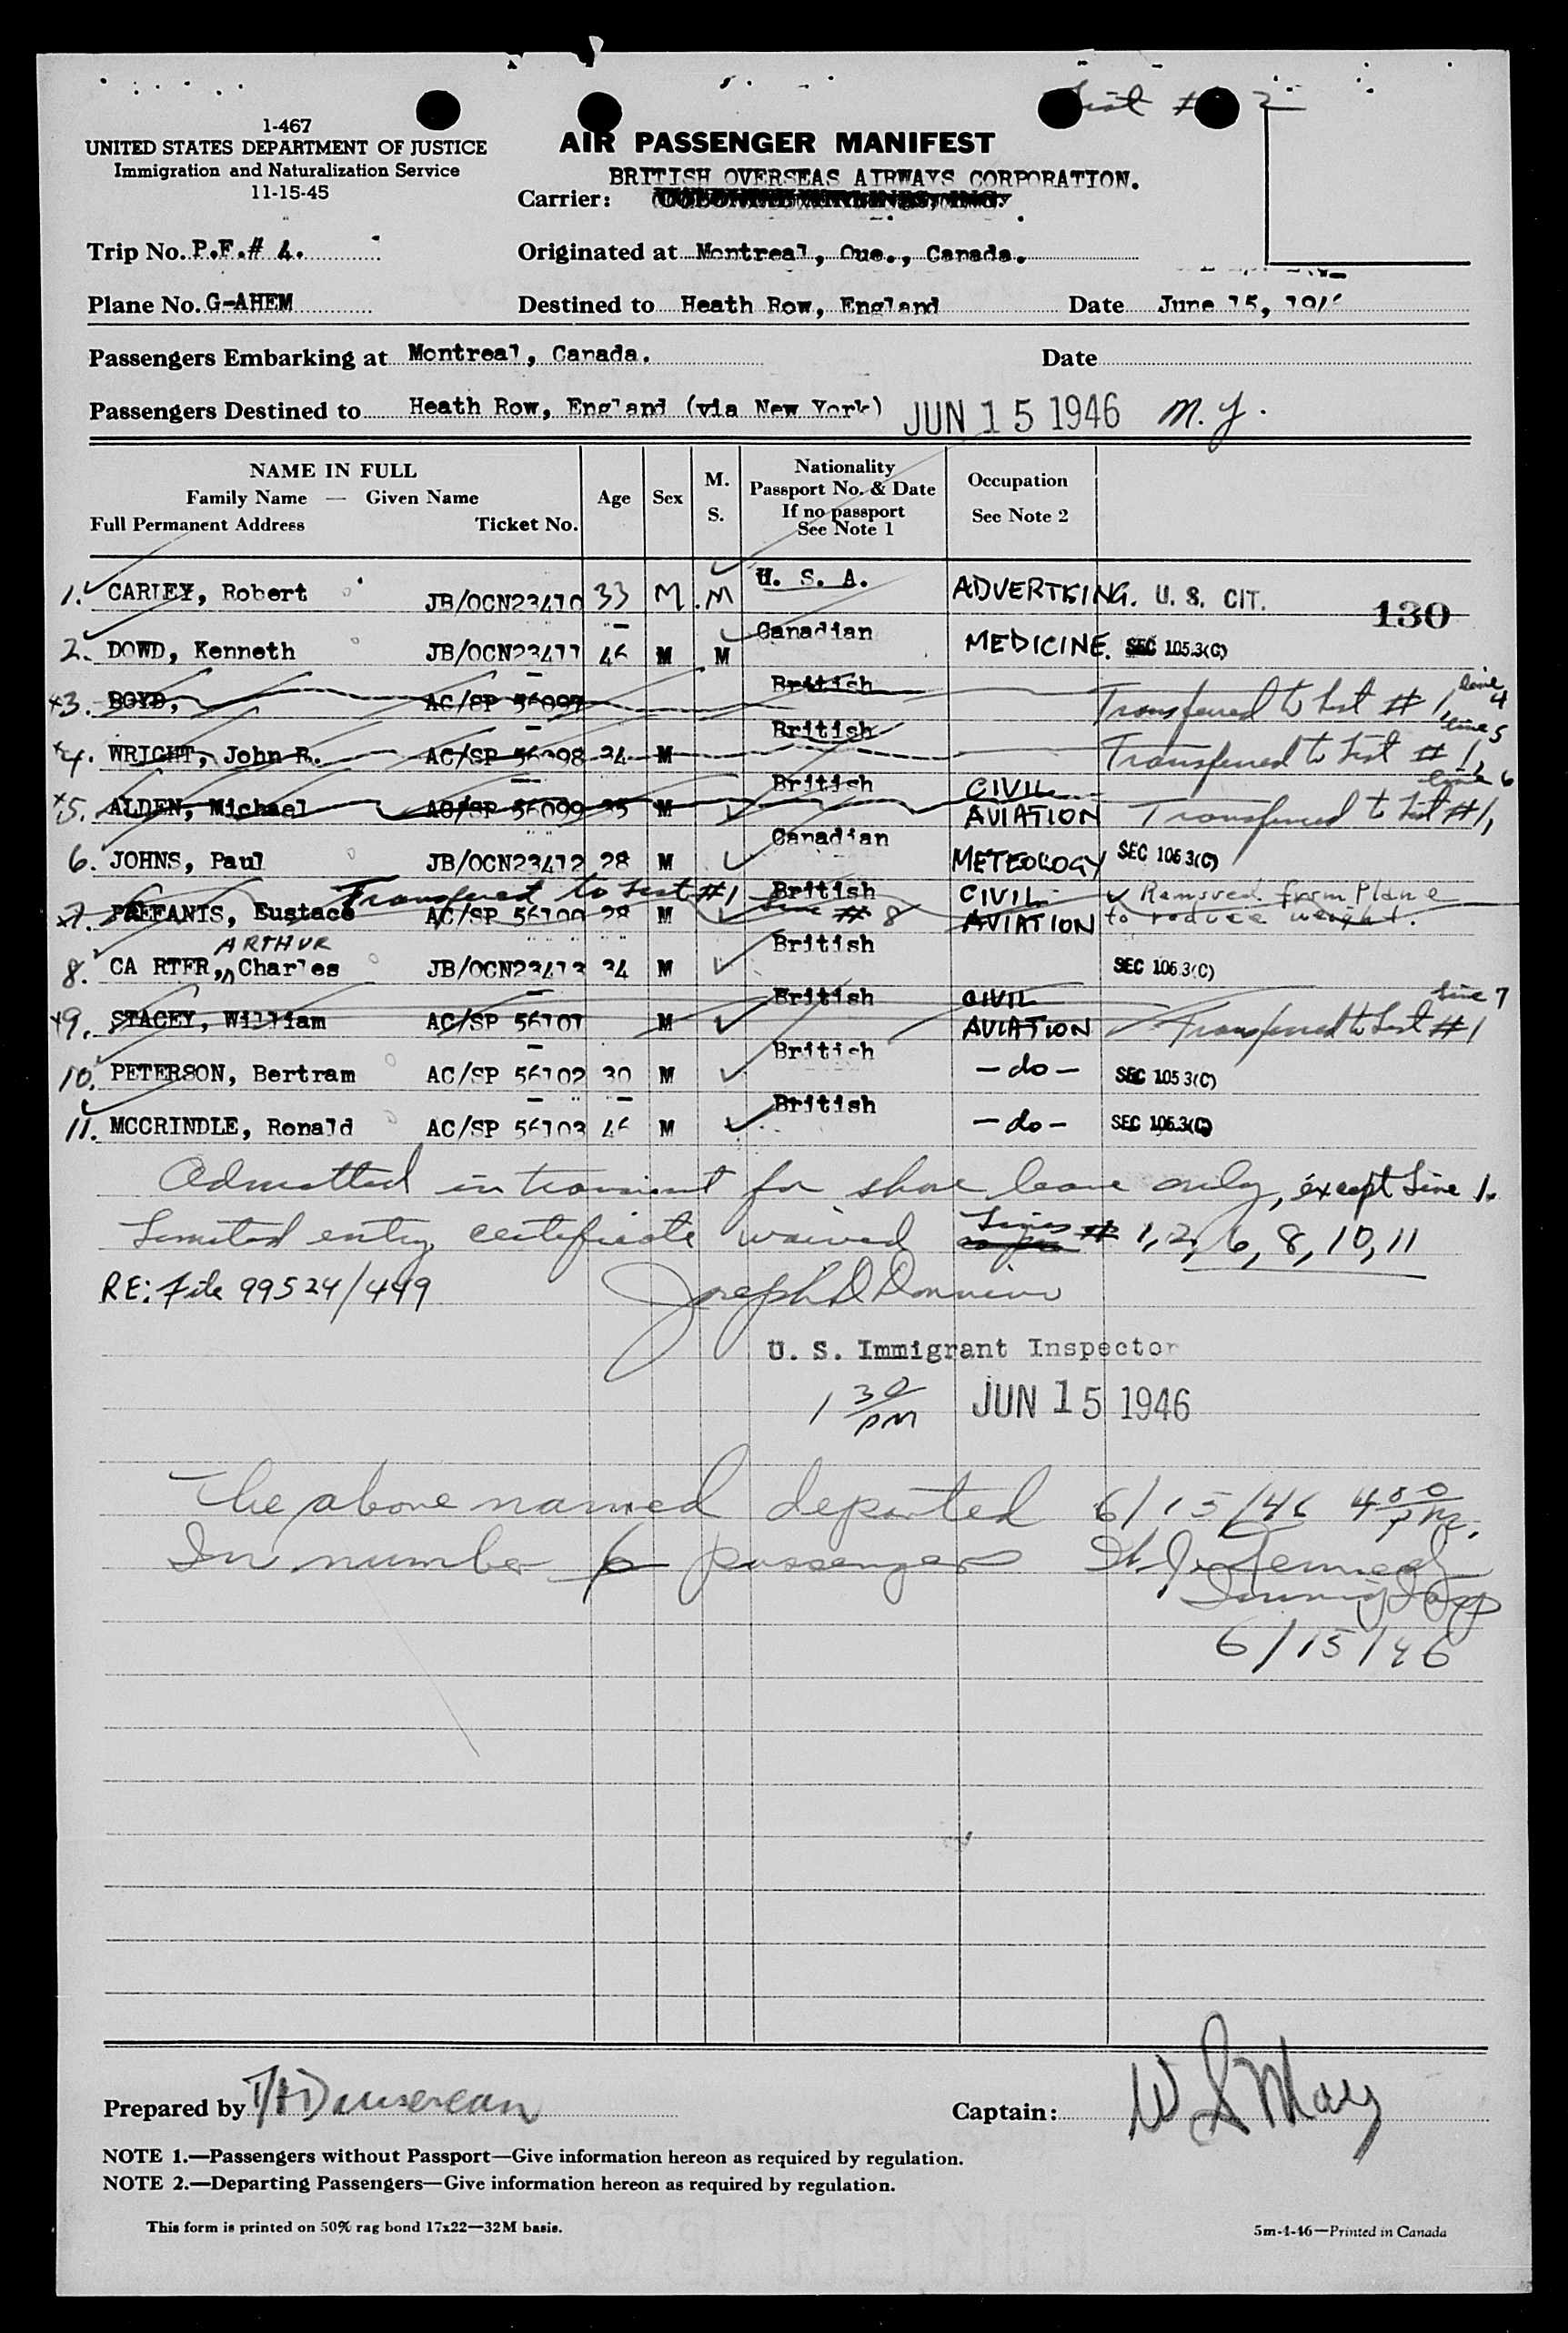 List # 2
1-467
UNITED STATES DEPARTMENT OF JUSTICE
Immigration and Naturalization Service
11-15-45
AIR PASSENGER MANIFEST
BRITISH OVERSEAS AIRWAYS CORPORATION.
Carrier:
Trip No. P.F.# 4.
Originated at Montreal, Que., Canada.
Plane No. G-AHEM
Destined to Heath Row, England
Date June 15, 1946
Passengers Embarking at Montreal, Canada.
Date
Passengers Destined to Heath Row, England (via New York) JUN 15 1946
NAME IN FULL
Family Name — Given Name
Full Permanent Address Ticket No.
Age
Sex
M.
S.
Nationality
Passport No. & Date
If no passport
See Note 1
Occupation
See Note 2
130
1. CARLEY, Robert JB/OCN23410 33 M M U. S. A. ADVERTISING. U. S. CIT.
2. DOWD, Kenneth JB/OCN23411 46 M M Canadian MEDICINE. SEC 105.3(C)
3. BOYD, AC/SP 56097 British Transferred to List # 1, line 4
4. WRIGHT, John R. AC/SP 56098 34 M British Transferred to List # 1, line 5
5. ALDEN, Michael AC/SP 56099 35 M British CIVIL AVIATION Transferred to List #1, line 6
6. JOHNS, Paul JB/OCN23412 28 M Canadian METEOLOGY SEC 105 3(C)
Transferred to List #1 Line # 8
7. PREFANIS, Eustace AC/SP 56100 28 M British CIVIL AVIATION Removed from Plane
to reduce weight.
ARTHUR
8. CARTER, Charles JB/OCN23413 34 M British SEC 105 3(C)
9. STACEY, William AC/SP 56101 M British CIVIL AVIATION Transferred to List #1 Line 7
10. PETERSON, Bertram AC/SP 56102 30 M British - do - SEC 105 3(C)
11. MCCRINDLE, Ronald AC/SP 56103 46 M British - do - SEC 105.3(C)
Admitted in transit for shore leave only, except Line 1.
Limited entry certificate waived Lines # 1, 2, 6, 8, 10, 11
RE: File 99524/449
U. S. Immigrant Inspector
1 30 PM JUN 15 1946
The above named departed 6/15/46 4 00 P.M.
In number 6 passengers
6/15/46
Prepared by
Captain: W S May
NOTE 1.—Passengers without Passport—Give information hereon as required by regulation.
NOTE 2.—Departing Passengers—Give information hereon as required by regulation.
This form is printed on 50% rag bond 17x22—32M basis.
5m-4-46—Printed in Canada